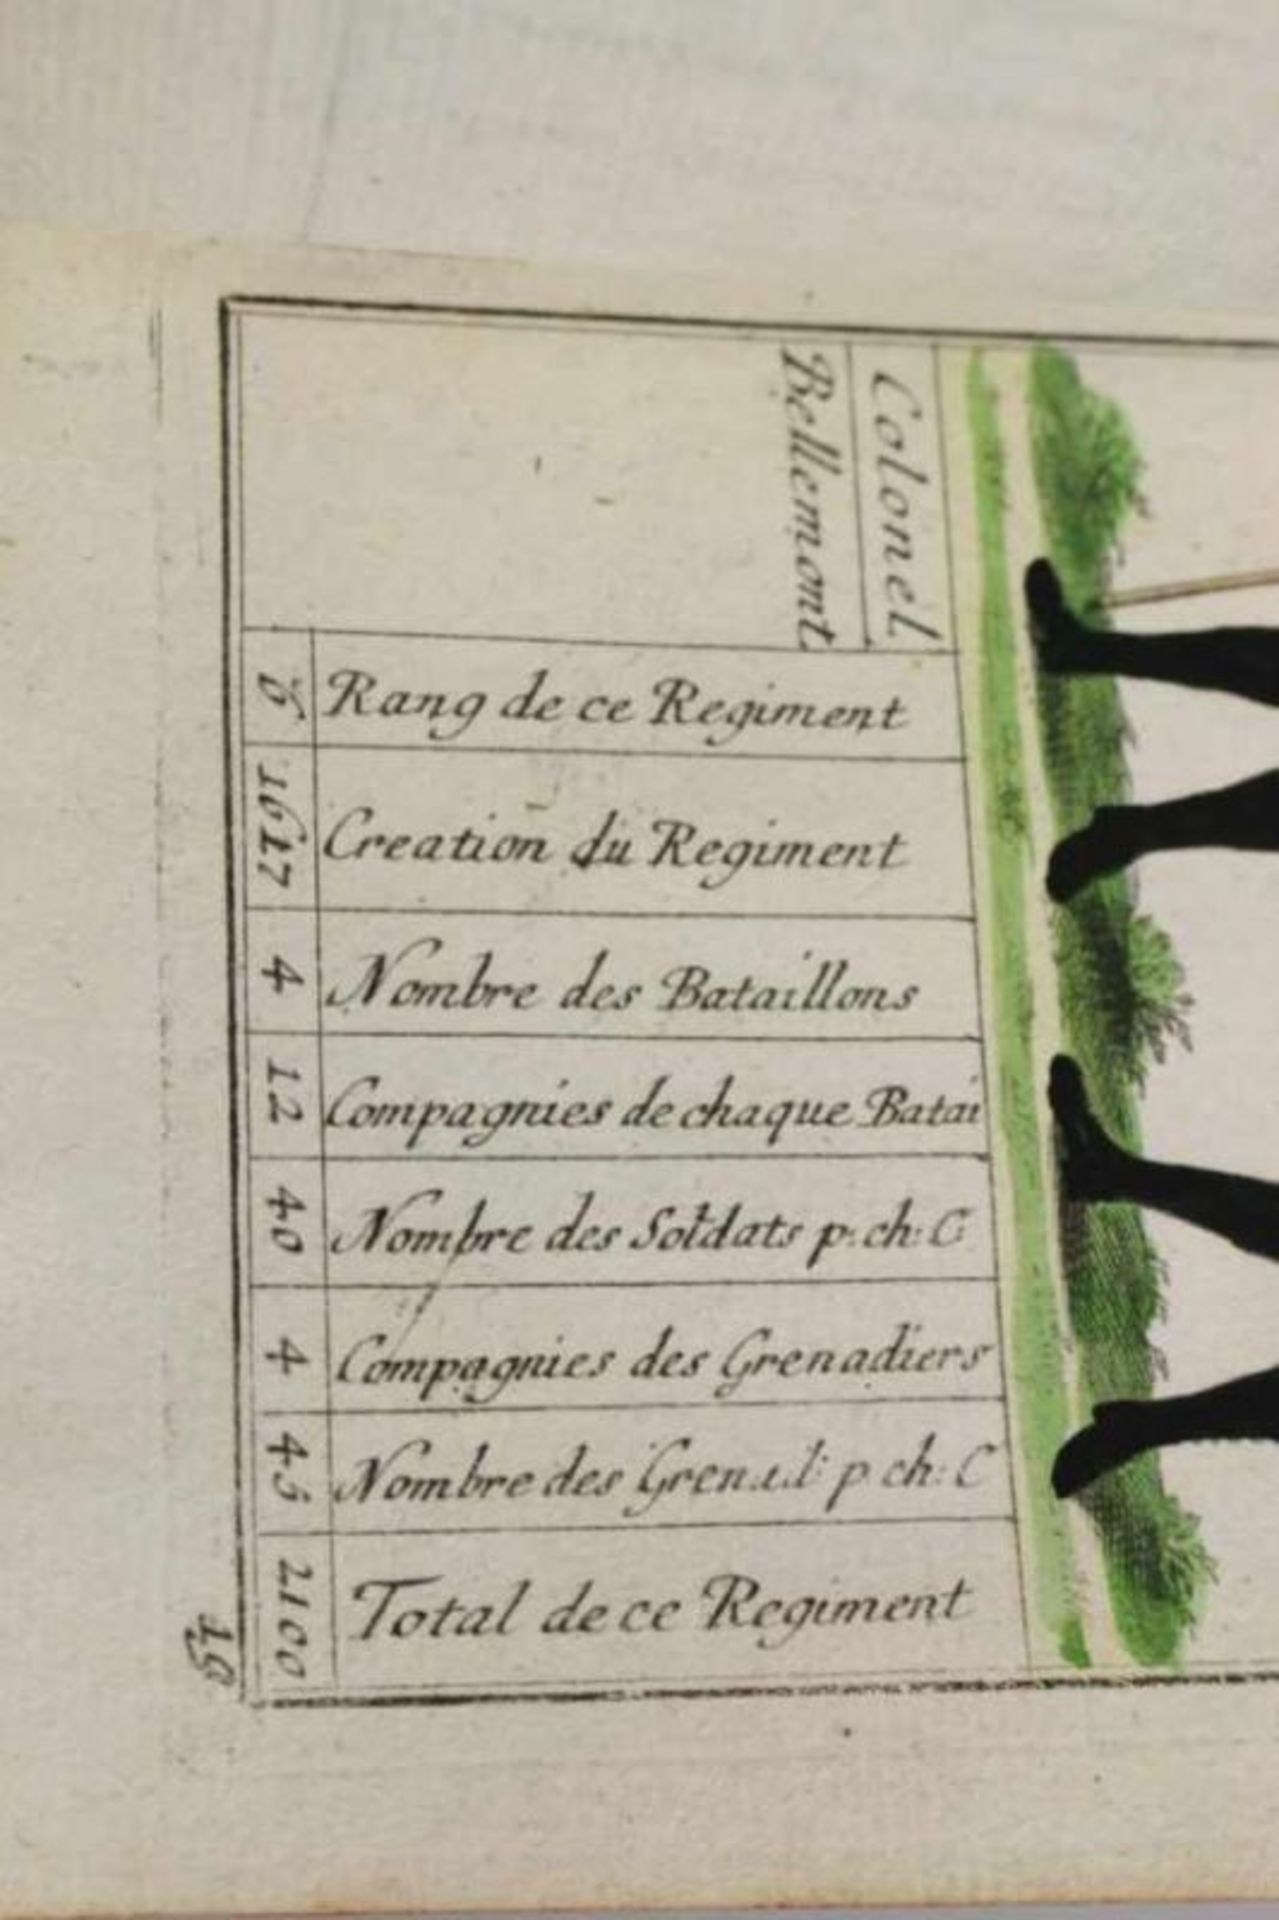 Colonel
Bellemont
Rang de ce Regiment
Creation du Regiment
1617
Nombre des Bataillons
4
Compagnies de chaque Batai
12
Nombre des Soldats p: ch: C
40
Compagnies des Grenadiers
4
Nombre des Grenad: p ch: C
45
Total de ce Regiment
2100